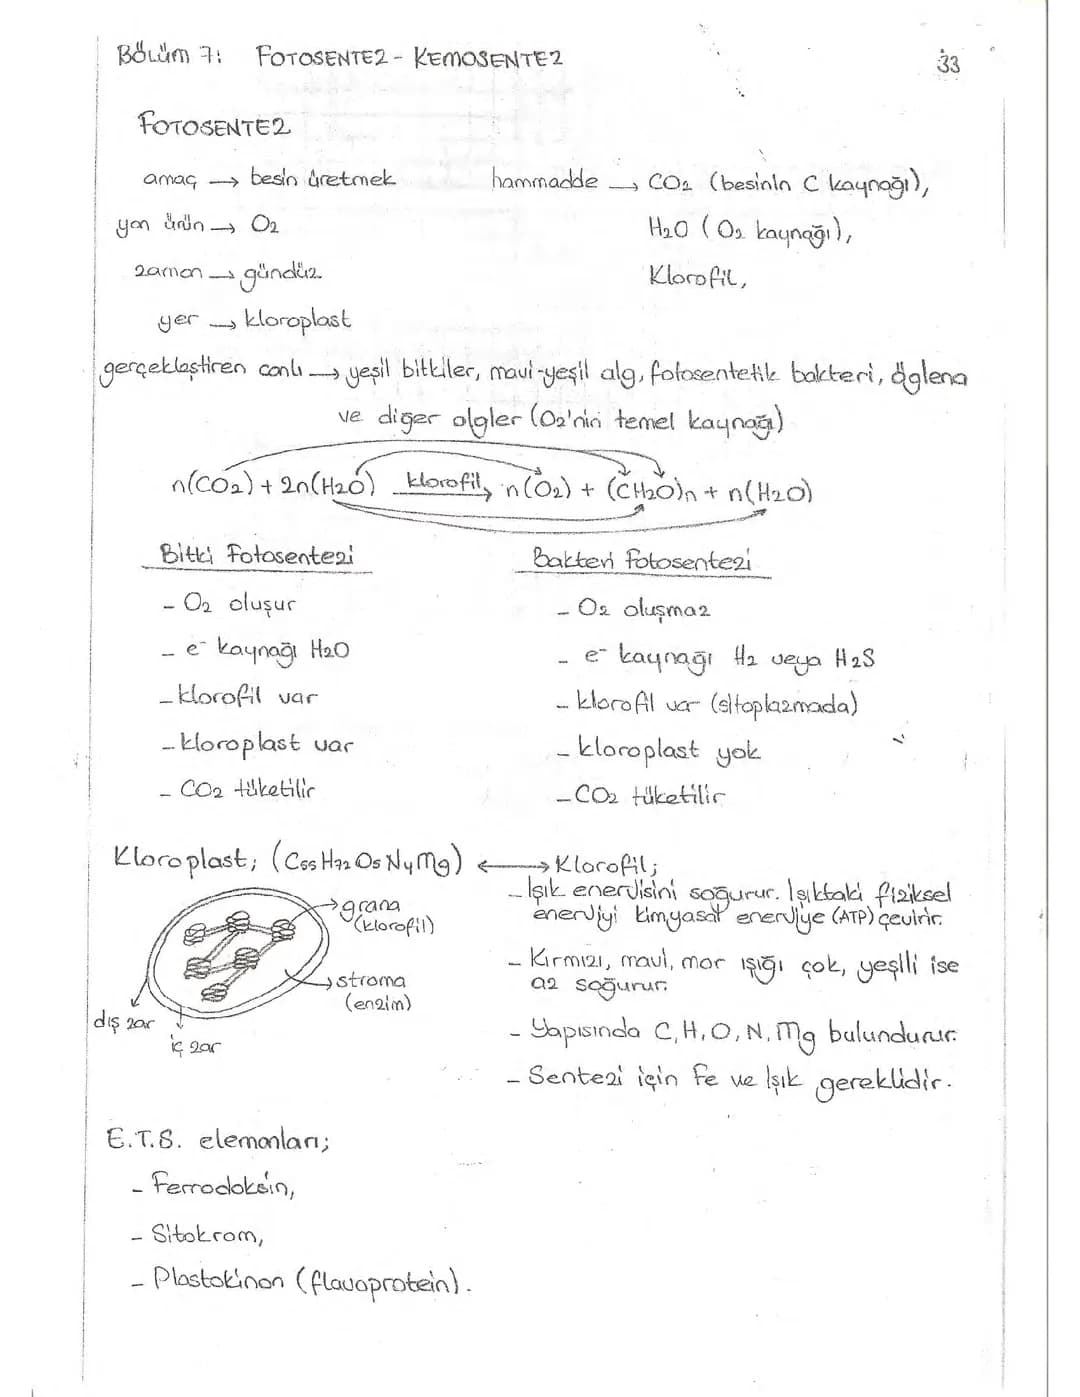 BÖLÜM 7: FOTOSENTEZ - KEMOSENTEZ
33
FOTOSENTEZ
amaç → besin üretmek
yan ürün → O2
zaman → gündüz
yer → kloroplast
hammadde → CO2 (besinin C kaynağı),
H2O (O2 kaynağı),
Klorofil,
gerçekleştiren canlı → yeşil bitkiler, mavi-yeşil alg, fotosentetik bakteri, öglena
ve diğer algler (O2'nin temel kaynağı)
n(CO2) + 2n(H2O) klorofil → n(O2) + (CH2O)n + n(H2O)
Bitki Fotosentezi
- O2 oluşur
- e- kaynağı H2O
- klorofil var
- kloroplast var
- CO2 tüketilir
Bakteri Fotosentezi
- O2 oluşmaz
- e- kaynağı H2 veya H2S
- klorofil var (sitoplazmada)
- kloroplast yok
- CO2 tüketilir
Kloroplast; (C55H72O5N4Mg) ↔ Klorofil;
grana
(klorofil)
stroma
(enzim)
dış zar
iç zar
- Işık enerjisini soğurur. Işıktaki fiziksel
enerjiyi kimyasal enerjiye (ATP) çevirir.
- Kırmızı, mavi, mor ışığı çok, yeşili ise
az soğurur.
- Yapısında C, H, O, N, Mg bulundurur.
- Sentezi için Fe ve Işık gereklidir.
E.T.S. elemanları;
- Ferrodoksin,
- Sitokrom,
- Plastokinon (flavoprotein).